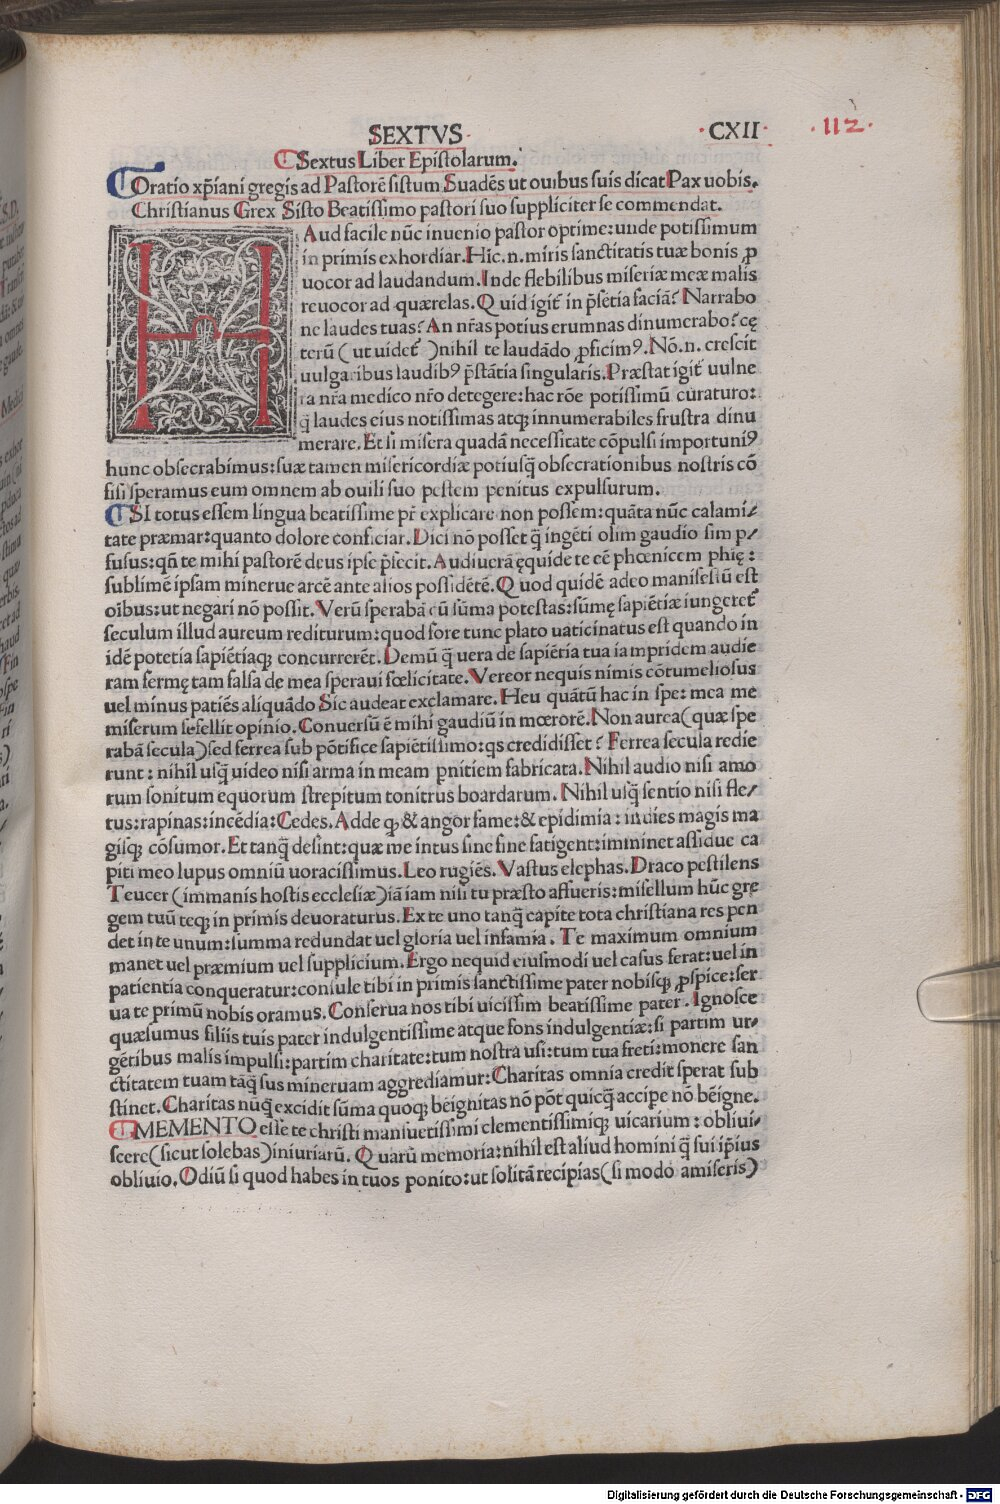 SEXTVS
·CXII·
·112·
Sextus Liber Epistolarum.
Oratio xp̄iani gregis ad Pastorē sistum Suadēs ut ouibus suis dicat Pax uobis.
Christianus Grex Sisto Beatissimo pastori suo suppliciter se commendat.
H Aud facile nūc inuenio pastor optime:unde potissimum
in primis exhordiar.Hic.n.miris sanctitatis tuæ bonis ꝓ
uocor ad laudandum.Inde flebilibus miseriæ meæ malis
reuocor ad quærelas.Quid igit᷑ in p̄sētia faciā? Narrabo
ne laudes tuas? An nr̄as potius erumnas dinumerabo? cę
terū (ut uidet᷑ )nihil te laudādo ꝓficimꝰ.Nō.n.crescit
uulgaribus laudibꝰ p̄stātia singularis.Præstat igit᷑ uulne
ra nr̄a medico nr̄o detegere:hac rōe potissimū curaturo:
q̄ laudes eius notissimas atqꝫ innumerabiles frustra dinu
merare.Et si misera quadā necessitate cōpulsi importuniꝰ
hunc obsecrabimus:suæ tamen misericordiæ potiusq̄ obsecrationibus nostris cō
fisi speramus eum omnem ab ouili suo pestem penitus expulsurum.
SI totus essem lingua beatissime pr̄ explicare non possem:quāta nūc calami/
tate præmar:quanto dolore conficiar.Dici nō posset q̄ ingēti olim gaudio sim p/
fusus:qn̄ te mihi pastorē deus ipse p̄fecit.Audiuerā ęquide te eē phœnicem phię:
sublimē ipsam minerue arcē ante alios possidētē.Quod quidē adeo manifestū est
oībus:ut negari nō possit.Verū sperabā cū sūma potestas:sūmę sapiētiæ iungeret᷑
seculum illud aureum rediturum:quod fore tunc plato uaticinatus est quando in
idē potētia sapiētiaqꝫ concurrerēt.Demū q̄ uera de sapiētia tua iampridem audie
ram fermę tam falsa de mea speraui fœlicitate.Vereor nequis nimis cōtumeliosus
uel minus patiēs aliquādo Sic audeat exclamare.Heu quātū hac in spe: mea me
miserum fefellit opinio.Conuersū ē mihi gaudiū in mœrorē.Non aurea(quæ spe
rabā secula)sed ferrea sub pōtifice sapiētissimo:qs credidisset? Ferrea secula redie
runt: nihil usq̄ uideo nisi arma in meam pnitiem fabricata.Nihil audio nisi armo
rum sonitum equorum strepitum tonitrus boardarum. Nihil usq̄ sentio nisi fle/
tus:rapinas:incēdia:Cedes.Adde qꝫ & angor fame:& epidimia: indies magis ma
gisqꝫ cōsumor.Et tanq̄ desint:quæ me intus sine fine fatigent:imminet assidue ca
piti meo lupus omniū uoracissimus.Leo rugiēs.Vastus elephas.Draco pestilens
Teucer (immanis hostis ecclesiæ)iā iam nisi tu præsto affueris:misellum hūc gre
gem tuū teqꝫ in primis deuoraturus.Ex te uno tanq̄ capite tota christiana res pen
det in te unum:summa redundat uel gloria uel infamia. Te maximum omnium
manet uel præmium uel supplicium.Ergo nequid eiusmodi uel casus ferat:uel in
patientia conqueratur:consule tibi in primis sanctissime pater nobisqꝫ ꝓspice:ser
ua te primū nobis oramus.Conserua nos tibi uicissim beatissime pater.Ignosce
quæsumus filiis tuis pater indulgentissime atque fons indulgentiæ:si partim ur/
gētibus malis impulsi:partim charitate:tum nostra usi:tum tua freti:monere san
ctitatem tuam tāq̄ sus mineruam aggrediamur:Charitas omnia credit sperat sub
stinet.Charitas nūq̄ excidit sūma quoqꝫ beignitas nō pōt quicq̄ accipe nō bēigne.
MEMENTO esse te christi mansuetissimi clementissimiqꝫ uicarium: obliui/
scere(sicut solebas)iniuriarū. Quarū memoria:nihil est aliud homini q̄ sui ip̄ius
obliuio.Odiū si quod habes in tuos ponito:ut solitā recipias(si modo amiseris)
Digitalisierung gefördert durch die Deutsche Forschungsgemeinschaft - DFG